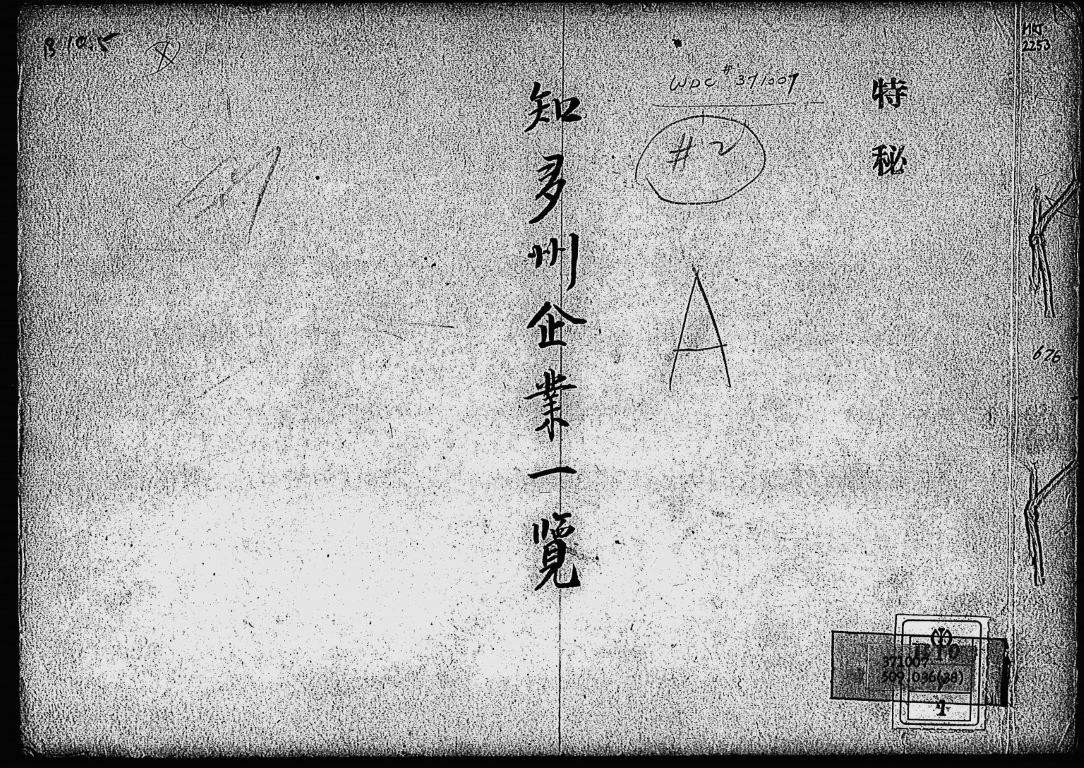 特秘
知多州企業一覧
B 10.5
WDC #371007
#2
A
MRJ
2253
676
371007
509.036(38)
7